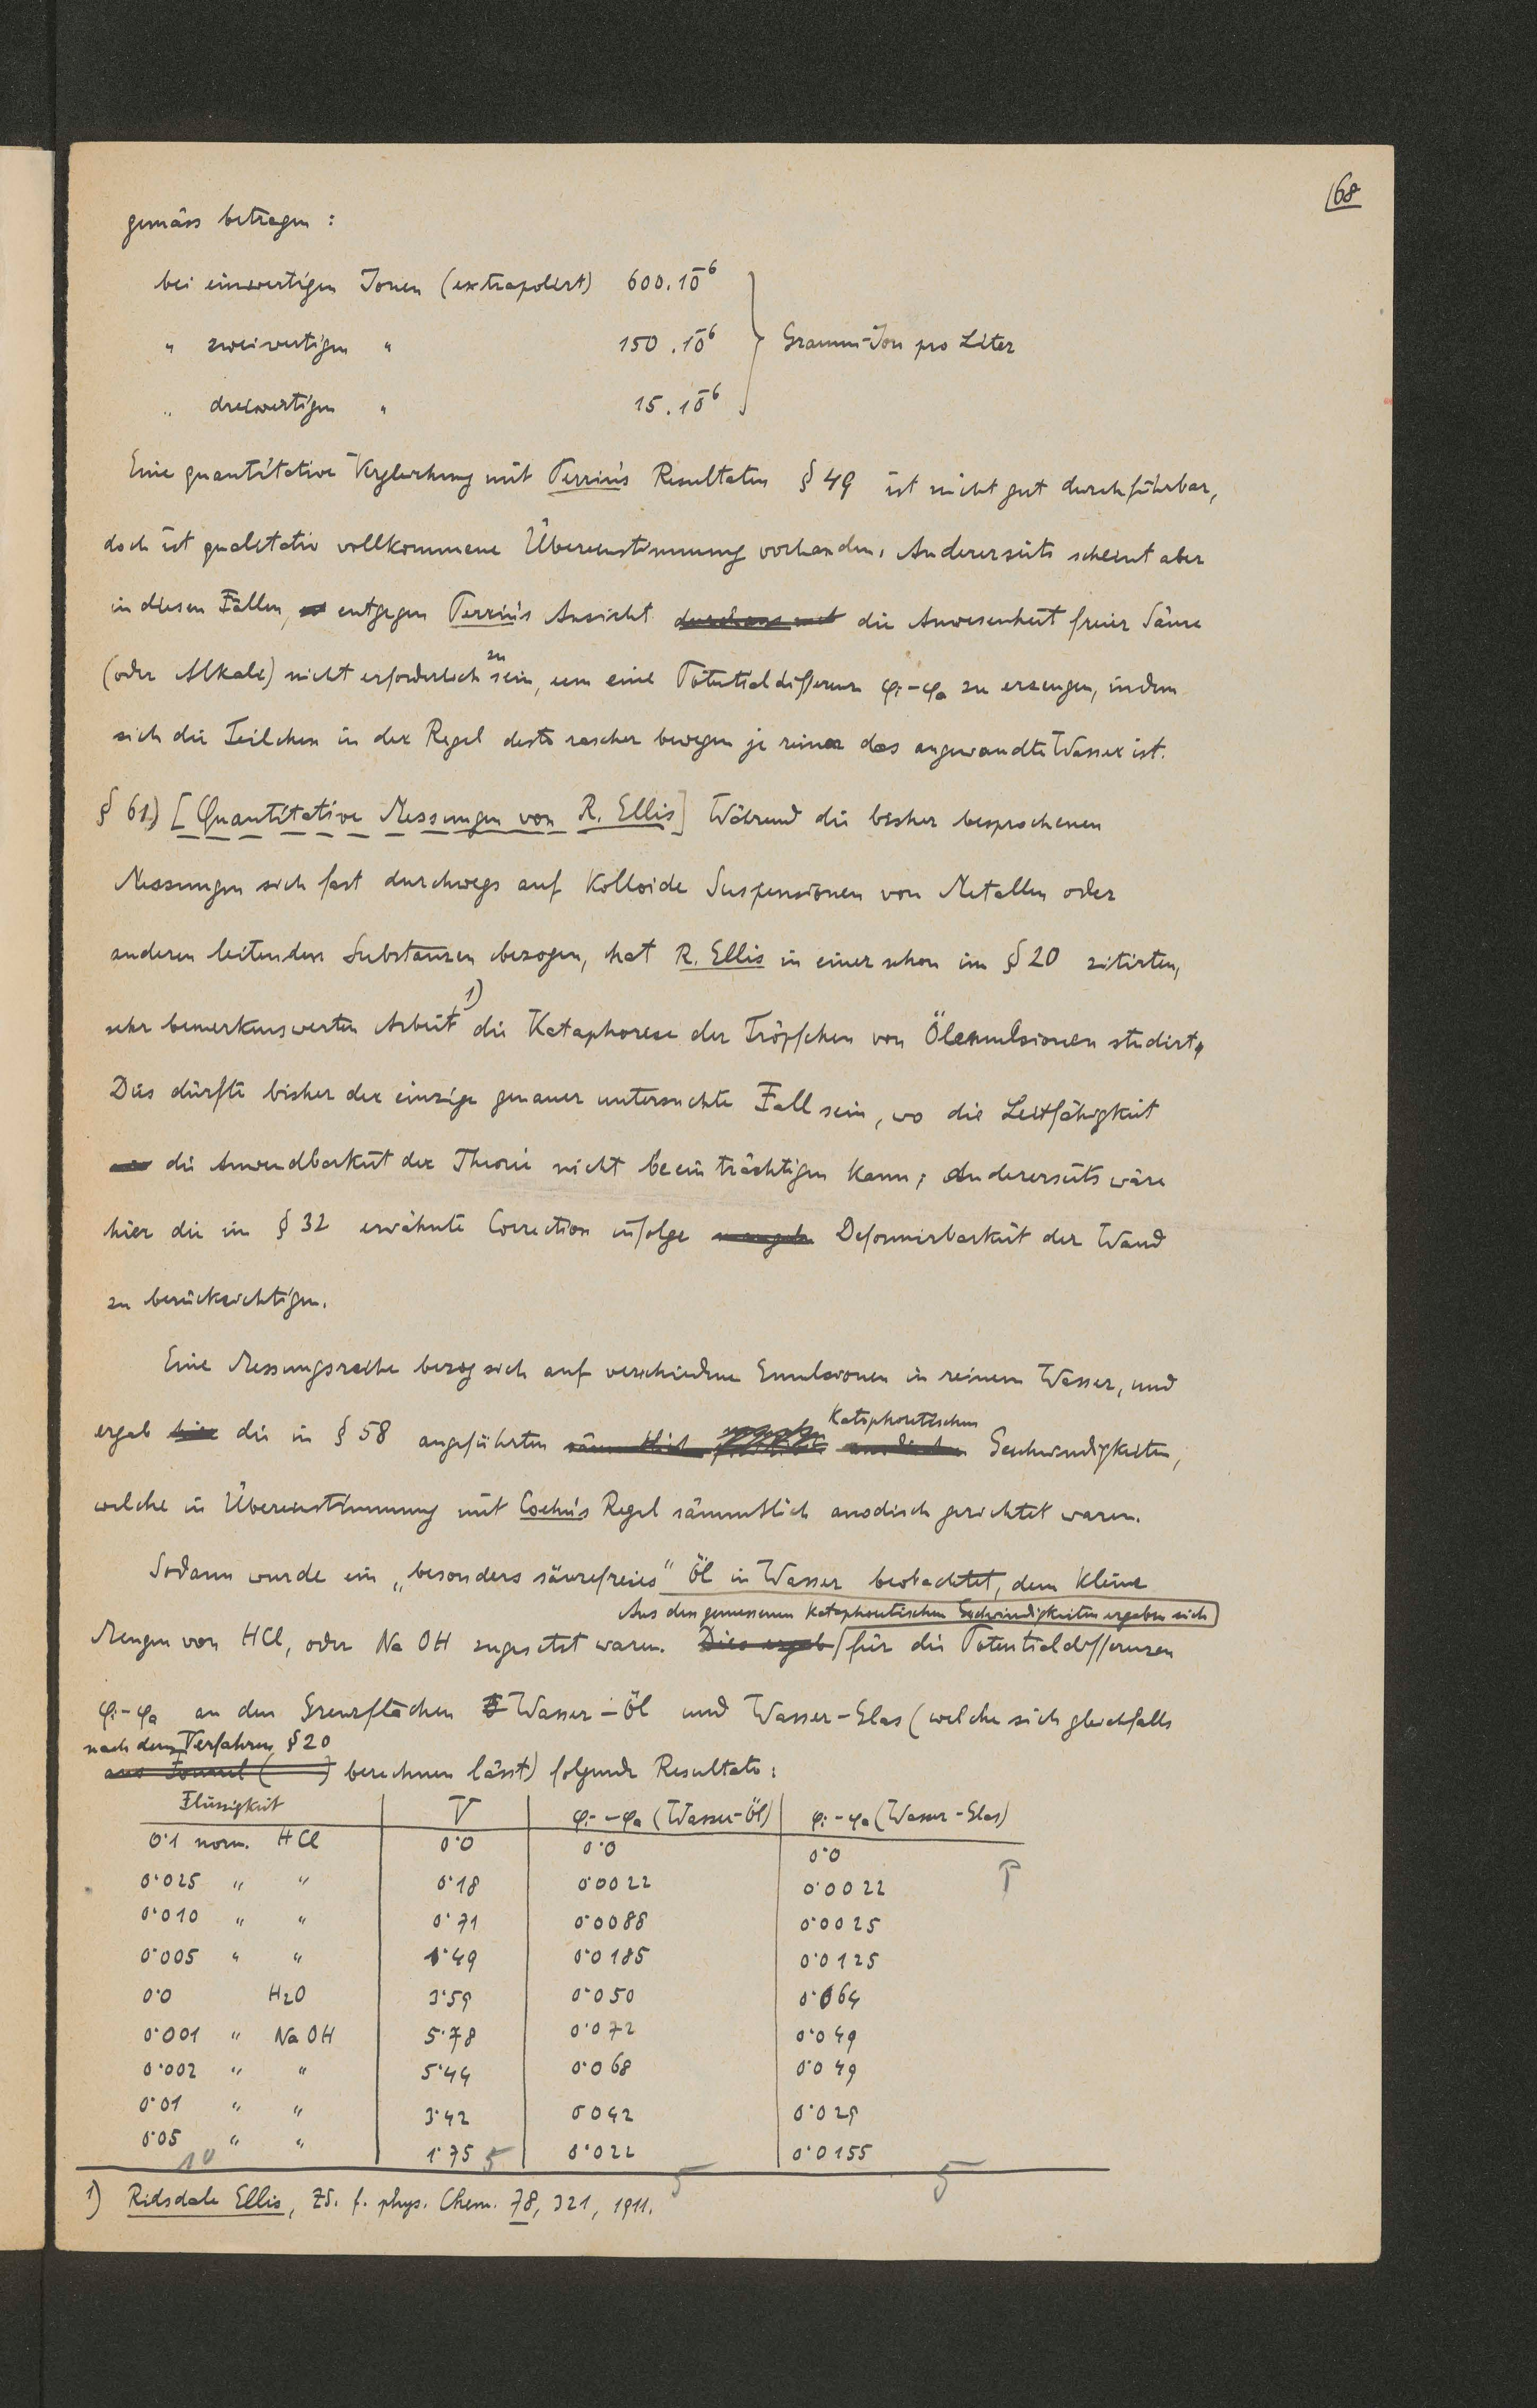 68
gemäss betragen :
bei einwertigen Ionen (extrapoliert) 600.10⁻⁶
" zweiwertigen " 150.10⁻⁶ } Gramm-Ion pro Liter
" dreiwertigen " 15.10⁻⁶
Eine quantitative Vergleichung mit Perrin's Resultaten § 49 ist nicht gut durchführbar,
doch ist qualitativ vollkommene Übereinstimmung vorhanden. Andererseits scheint aber
in diesen Fällen, entgegen Perrin's Ansicht durchaus nicht die Anwesenheit freier Säure
(oder Alkali) nicht erforderlich zu sein, um eine Potentialdifferenz φi-φa zu erzeugen, indem
sich die Teilchen in der Regel desto rascher bewegen je reiner das angewandte Wasser ist.
§ 61) [Quantitative Messungen von R. Ellis] Während die bisher besprochenen
Messungen sich fast durchwegs auf Kolloide Suspensionen von Metallen oder
anderen leitenden Substanzen bezogen, hat R. Ellis in einer schon im § 20 zitirten,
sehr bemerkenswerten Arbeit 1) die Kataphorese der Tröpfchen von Ölemulsionen studirt.
Dies dürfte bisher der einzige genauer untersuchte Fall sein, wo die Leitfähigkeit
die Anwendbarkeit der Theorie nicht beeinträchtigen kann; andererseits wäre
hier die im § 32 erwähnte Correction infolge Deformirbarkeit der Wand
zu berücksichtigen.
Eine Messungsreihe bezog sich auf verschiedene Emulsionen in reinem Wasser, und
ergab hier die in § 58 angeführten sämmtlich kataphoretischen Geschwindigkeiten,
welche in Übereinstimmung mit Coehn's Regel sämmtlich anodisch gerichtet waren.
Sodann wurde ein „besonders säurefreies" Öl in Wasser beobachtet, dem kleine
Aus den gemessenen kataphoretischen Geschwindigkeiten ergaben sich
Mengen von HCl, oder NaOH zugesetzt waren. Dies ergab für die Potentialdifferenzen
φi-φa an den Grenzflächen Wasser-Öl und Wasser-Glas (welche sich gleichfalls
nach dem Verfahren § 20
aus Formel ( ) berechnen lässt) folgende Resultate:
Flüssigkeit V φi-φa (Wasser-Öl) φi-φa (Wasser-Glas)
0·1 norm. HCl 0·0 0·0 0·0
0·025 " " 0·18 0·0022 0·0022
0·010 " " 0·71 0·0088 0·0025
0·005 " " 1·49 0·0185 0·0125
0·0 H₂O 3·59 0·050 0·064
0·001 " NaOH 5·78 0·072 0·049
0·002 " " 5·44 0·068 0·049
0·01 " " 3·42 0·042 0·029
0·05 " " 1·75 0·022 0·0155
10 5 5 5
1) Ridsdale Ellis, ZS. f. phys. Chem. 78, 321, 1911.